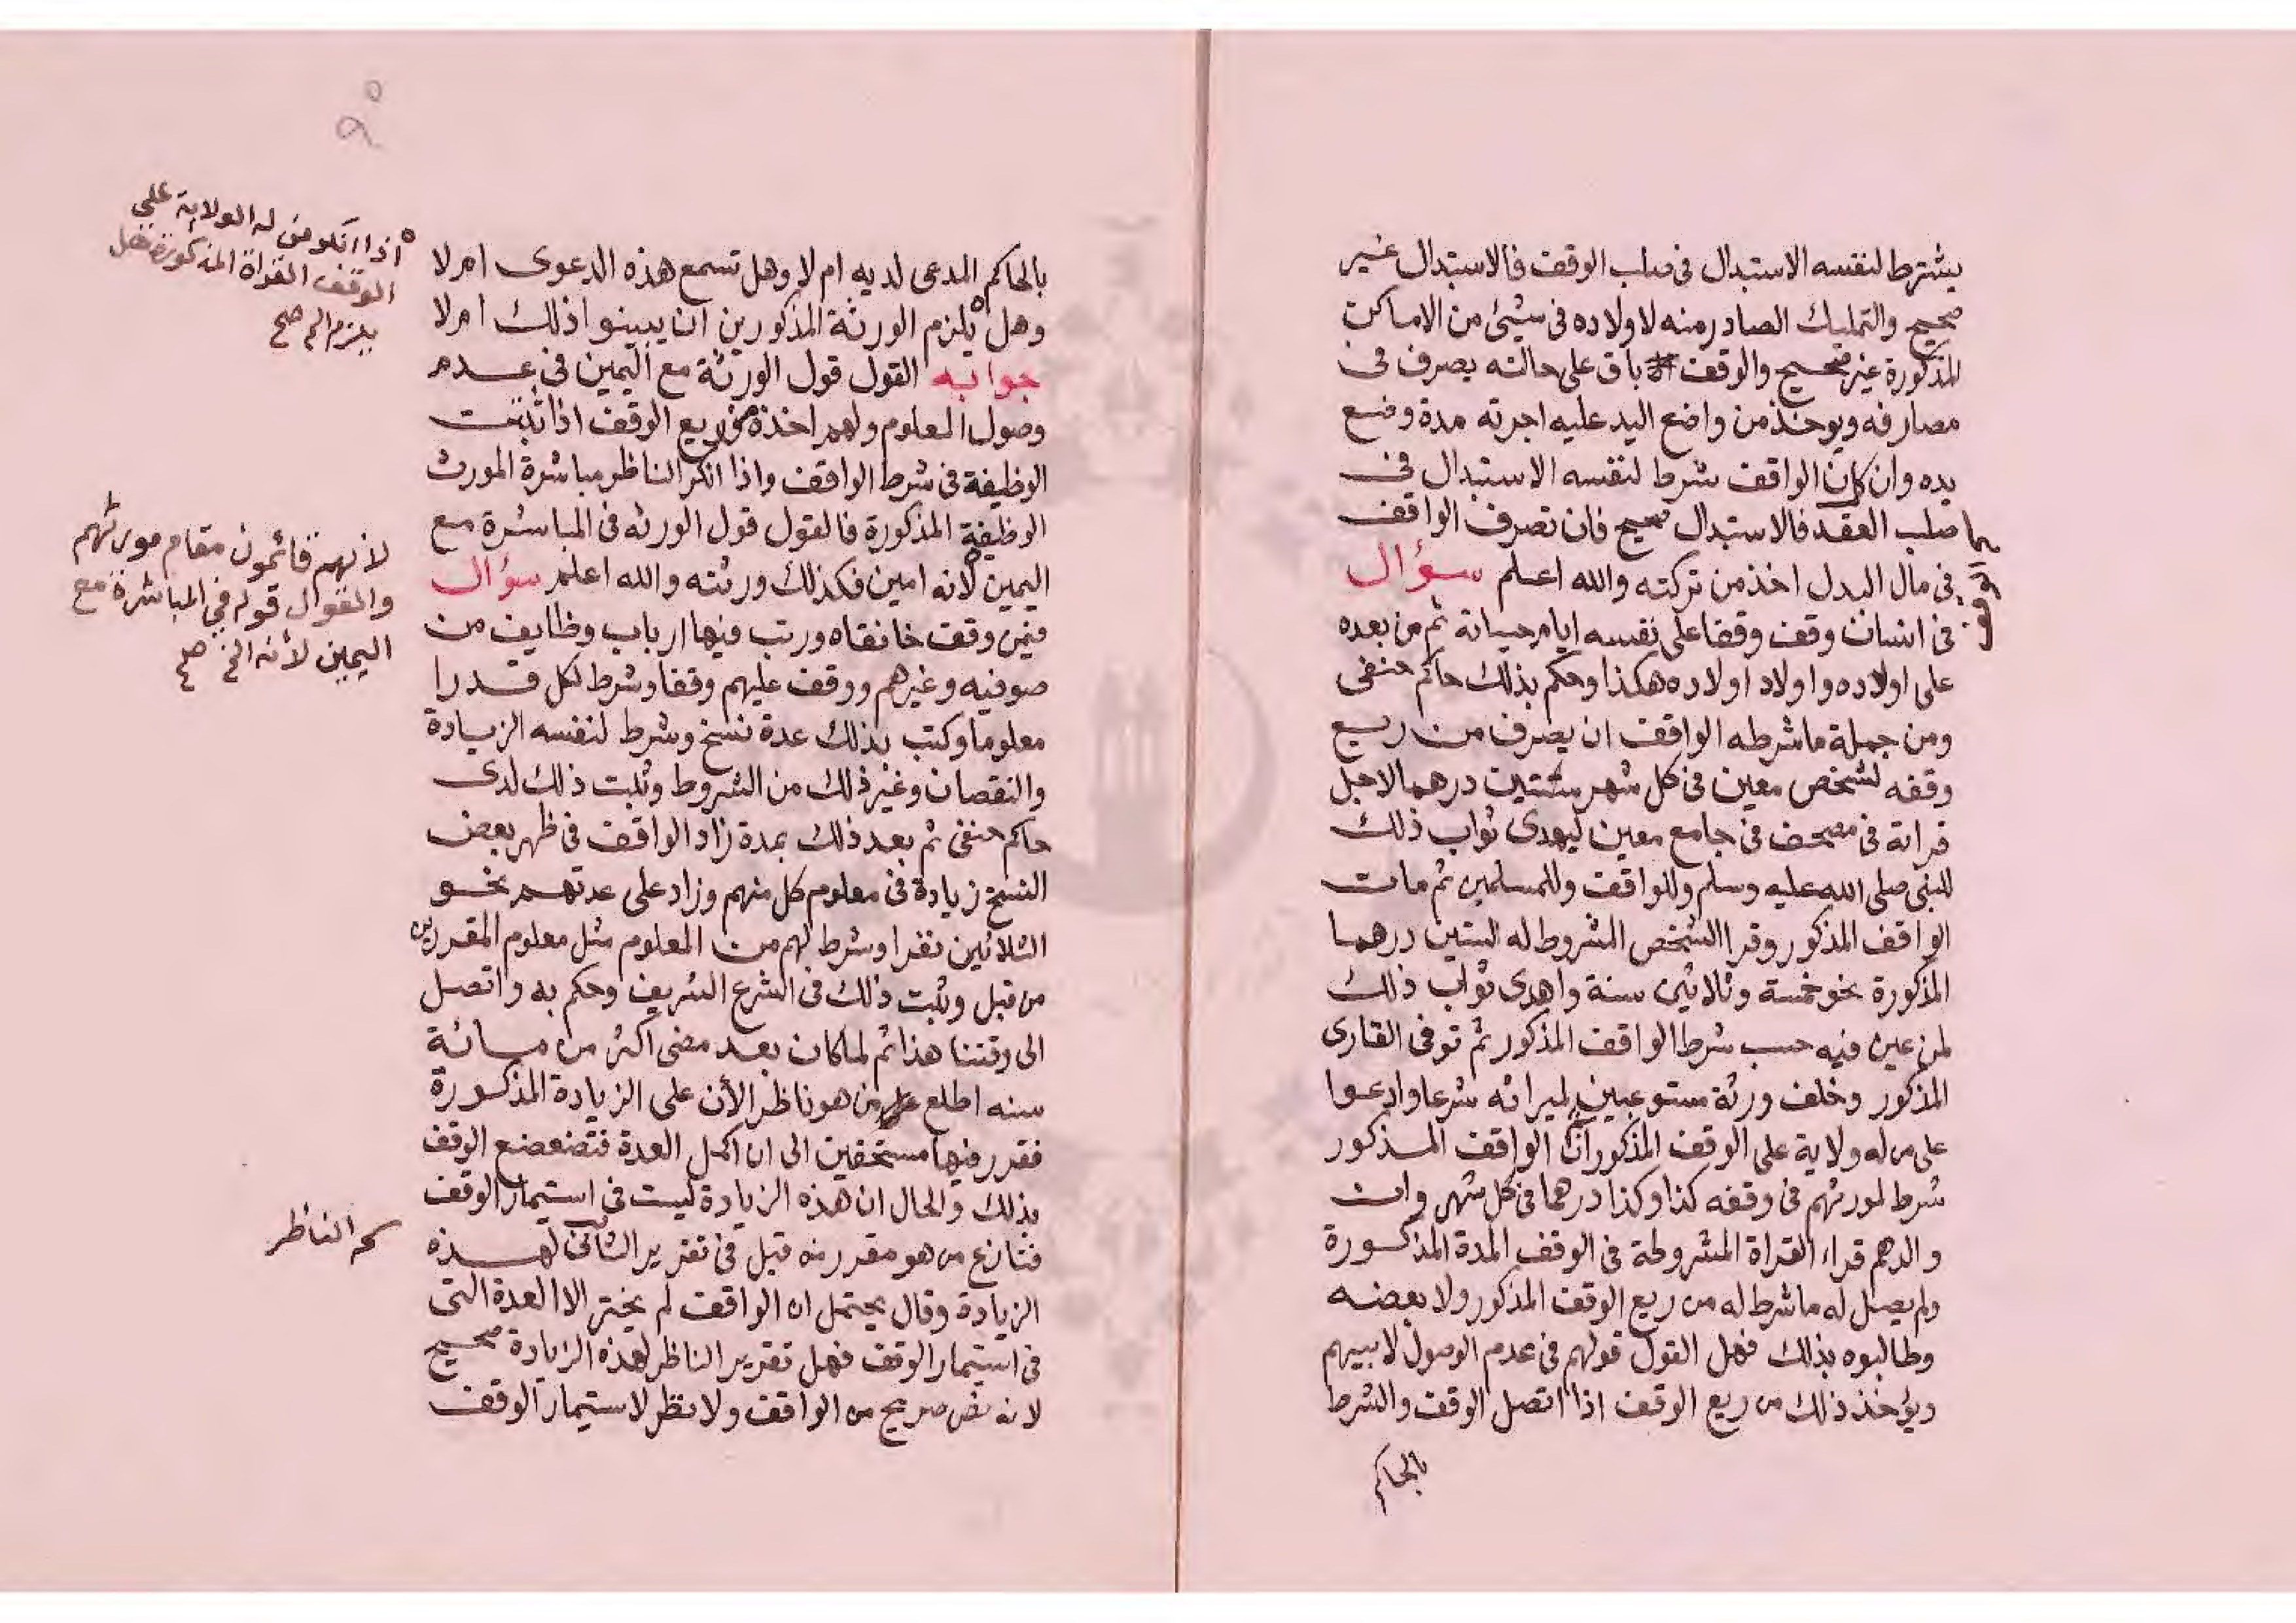 يشترط لنفسه الاستبدال فى صلب الوقف فالاستبدال غير
صحيح والتمليك الصادر منه لاولاده فى شيئ من الاماكن
المذكورة غير صحيح والوقف باق على حالته يصرف فى
مصارفه ويوخذ من واضع اليد عليه اجرته مدة وضع
يده وان كان الواقف شرط لنفسه الاستبدال فى
صلب العقد فالاستبدال صحيح فان تصرف الواقف
فى مال البدل اخذ من تركته والله اعلم سؤال
فى انسان وقف وقفا على نفسه ايام حياته ثم من بعده
على اولاده واولاد اولاده هكذا وحكم بذلك حاكم حنفى
ومن جملة ما شرطه الواقف ان يصرف من ريع
وقفه لشخص معين فى كل شهر ستين درهما لاجل
قراته فى مصحف فى جامع معين ليهدى ثواب ذلك
للنبى صلى الله عليه وسلم وللواقف وللمسلمين ثم مات
الواقف المذكور وقرا الشخص المشروط له الستين درهما
المذكورة نحو خمسة وثلاثين سنة واهدى ثواب ذلك
لمن عين فيه حسب شرط الواقف المذكور ثم توفى القارى
المذكور وخلف ورثة مستوعبين لميراثه شرعا وادعوا
على من له ولاية على الوقف المذكور ان الواقف المذكور
شرط لمورثهم فى وقفه كذا وكذا درهما فى كل شهر وان
والدهم قراء القراة المشروطة فى الوقف المدة المذكورة
ولم يصل له ما شرط له من ريع الوقف المذكور ولا بعضه
وطالبوه بذلك فهل القول قولهم فى عدم الوصول لابيهم
ويؤخذ ذلك من ريع الوقف اذا اتصل الوقف والشرط
بالحاكم
بالحاكم المدعى لديه ام لا وهل تسمع هذه الدعوى ام لا
وهل يلزم الورثة المذكورين ان يبينوا ذلك ام لا
جوابه القول قول الورثة مع اليمين فى عدم
وصول المعلوم ولهم اخذه من ريع الوقف اذا ثبتت
الوظيفة فى شرط الواقف واذا انكر الناظر مباشرة المورث
الوظيفة المذكورة فالقول قول الورثه فى المباشرة مع
اليمين لانه امين فكذلك ورثته والله اعلم سؤال
فيمن وقف خانقاه ورتب فيها ارباب وظايف من
صوفيه وغيرهم ووقف عليهم وقفا وشرط لكل قدرا
معلوما وكتب بذلك عدة نسخ وشرط لنفسه الزيادة
والنقصان وغير ذلك من الشروط وثبت ذلك لدى
حاكم حنفى ثم بعد ذلك بمدة زاد الواقف فى ظهر بعض
النسخ زيادة فى معلوم كل منهم وزاد على عدتهم نحو
الثلاثين نفرا وشرط لهم من المعلوم مثل معلوم المقررين
من قبل وثبت ذلك فى الشرع الشريف وحكم به واتصل
الى وقتنا هذا ثم لما كان بعد مضى اكثر من مائة
سنه اطلع من هو ناظر الأن على الزيادة المذكورة
فقرر فيها مستحقين الى ان اكمل العدة فتضعضع الوقف
بذلك والحال ان هذه الزيادة ليست فى استيمار الوقف
فتنازع من هو مقرر من قبل فى تقرير الثانى لهذه
الزيادة وقال يحتمل ان الواقف لم يختر الا العدة التى
فى استيمار الوقف فهل تقرير الناظر لهذه الزيادة صحيح
لانه نص صريح من الواقف ولا نظر لاستيمار الوقف
اذا انكر من له الولاية على
الوقف القراة المذكورة فهل
يلزم الخ صح
لأنهم قائمون مقام مورثهم
والقول قوله في المباشرة مع
اليمين لأنه الخ صح
الناظر